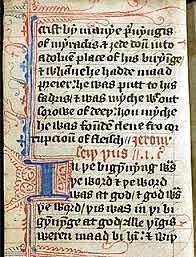 crist by manye pryuyngis
of myraclis & ȝede doun into
a doluē place of his biriynge
& whanne he hadde maad
preier he was putt to his
fadris & was myche wiþout
sorowe of deeþ hou myche
he was foūde clene fro cor
rupcioun of fleisch / Jerom
seiþ þus .i. c̄
In þe bigynnyng was
þe word & þe word
was at god / & god was
þe word / þis was in þe bi
gynnynge at god / Alle þingis
weren maad bi hī & wiþ